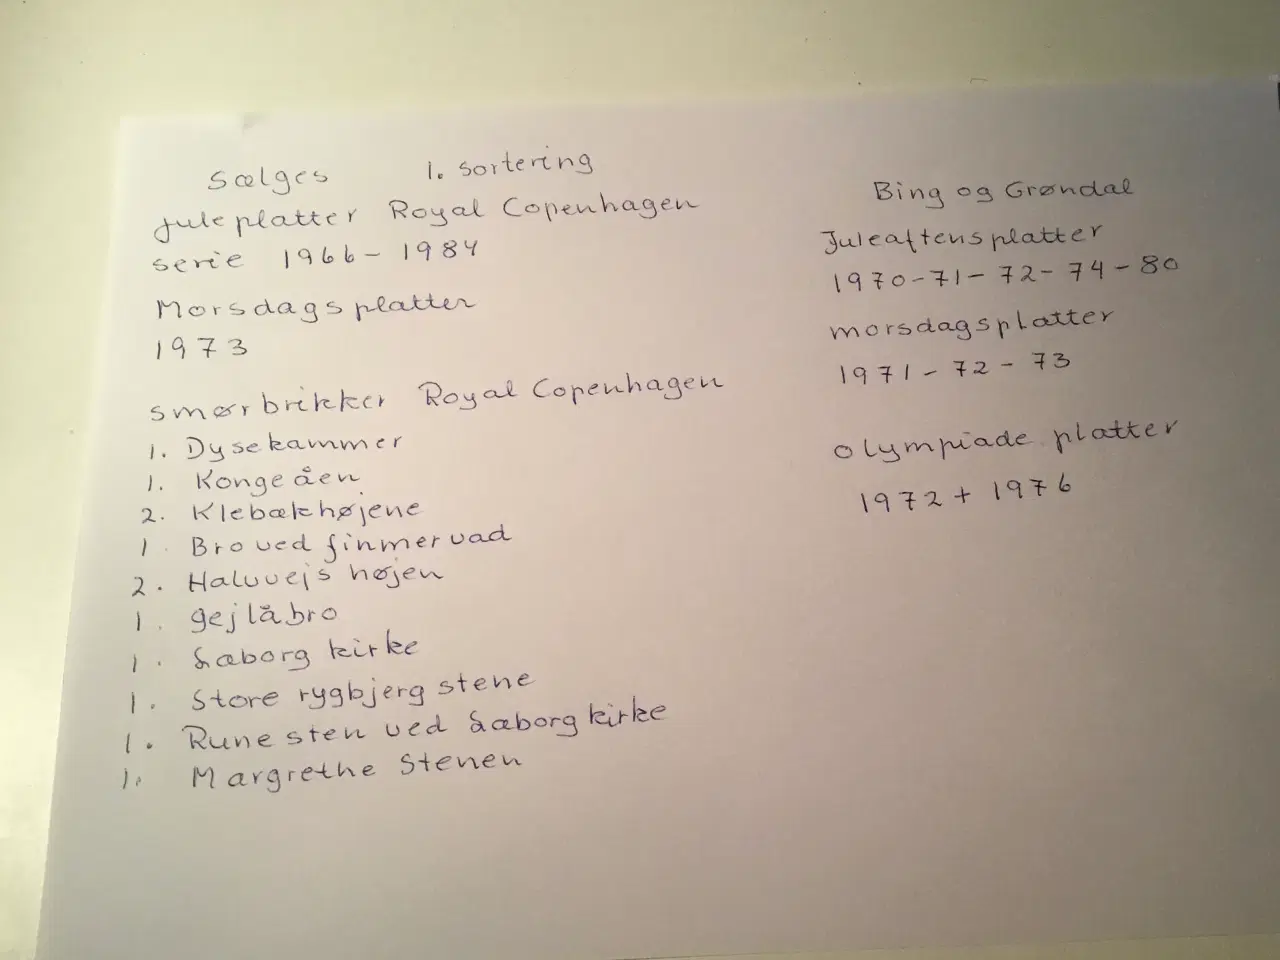 Sælges 1. sortering
juleplatter Royal Copenhagen
serie 1966 - 1984
Morsdagsplatter
1973
smørbrikker Royal Copenhagen
1. Dysekammer
1. Kongeåen
2. Klebækhøjene
1. Bro ved finmervad
2. Halvvejshøjen
1. gejlåbro
1. Læborg kirke
1. Store rygbjerg stene
1. Runesten ved Læborg kirke
1. Margrethe Stenen
Bing og Grøndal
Juleaftensplatter
1970-71-72-74-80
morsdagsplatter
1971-72-73
olympiade platter
1972 + 1976